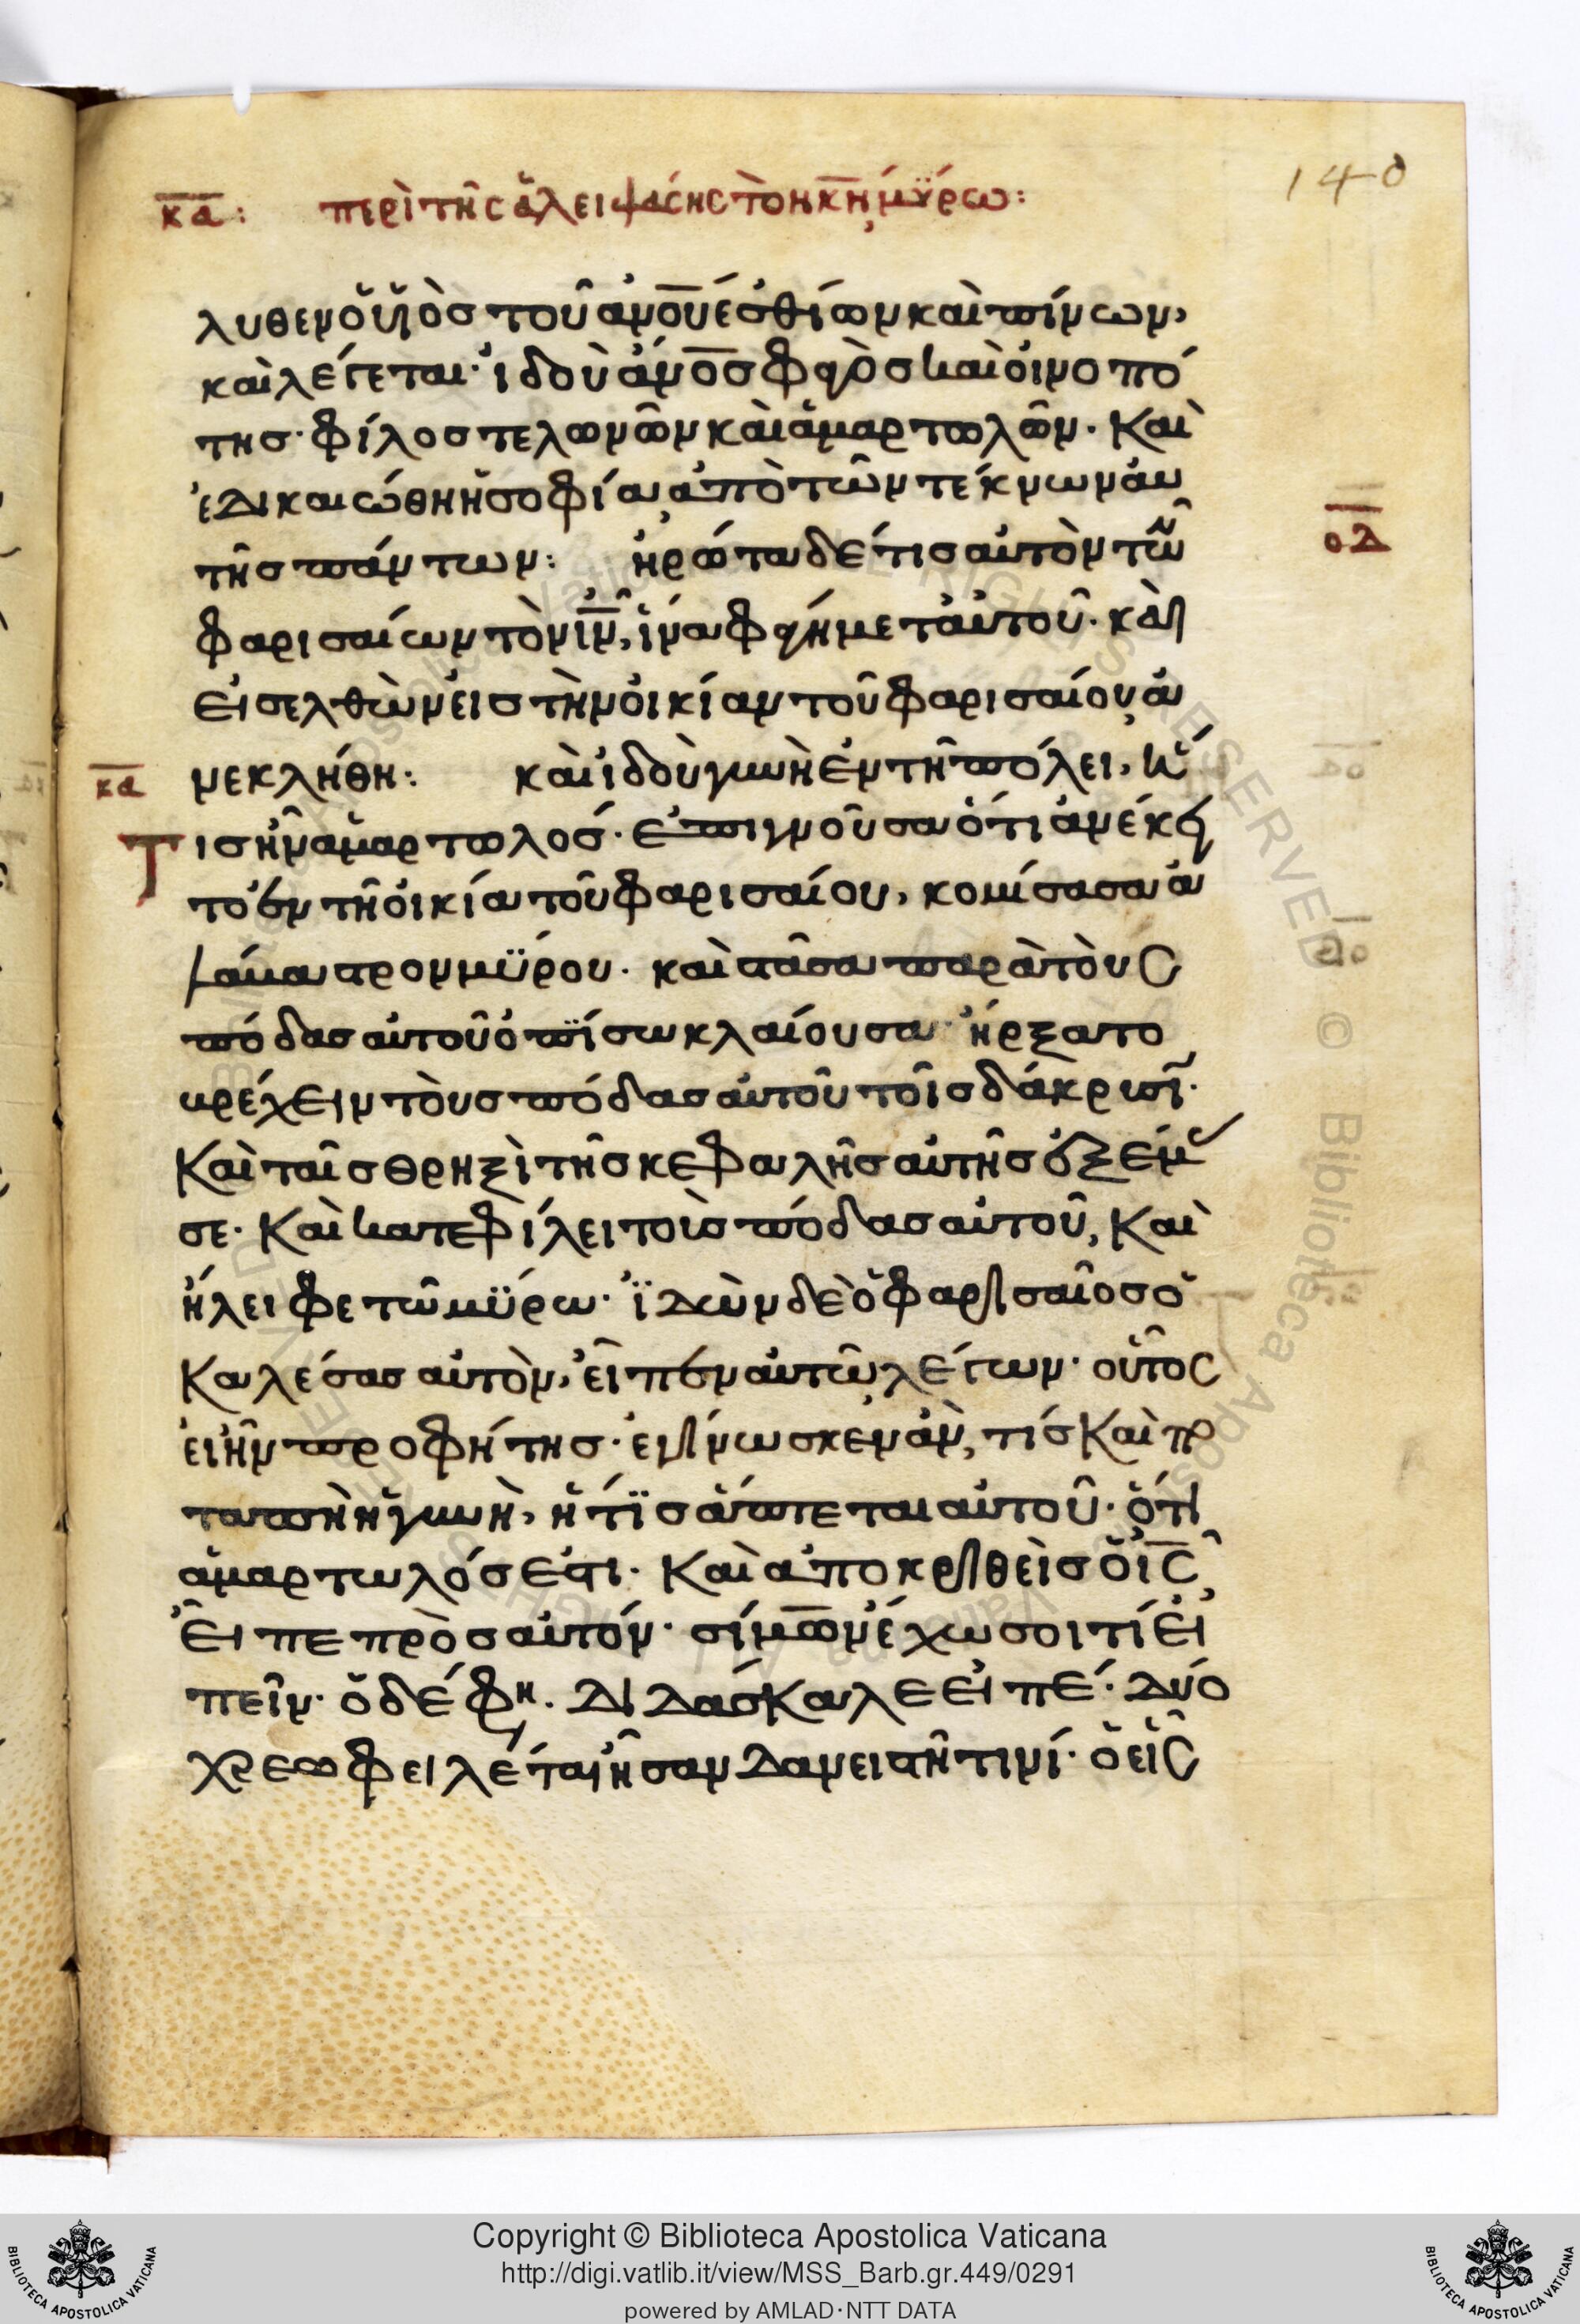 κα: περὶ τῆς ἀλειψάσης τὸν κν μύρω:
140
λυθεν ὁ υἱὸσ τοῦ ανου ἐσθίων καὶ πίνων,
καὶ λέγεται· ἰδοὺ ἀνοσ φάγοσ καὶ οἰνοπό
τησ· φίλοσ τελωνῶν καὶ ἁμαρτωλῶν. Καὶ
ἐδικαιώθη ἡ σοφία, ἀπὸ τῶν τέκνων ἀυ
τῆσ πάντων: ἠρώτα δέ τισ αὐτὸν τῶν
οδ
φαρισαίων τὸν ιν, ἵνα φάγη μετ αὐτοῦ. καὶ
εἰσελθὼν εἰσ τὴν οἰκίαν τοῦ φαρισαίου, ἀ
κα
νεκλήθη: καὶ ἰδοὺ γυνὴ ἐν τῆ πόλει, ἥ
τισ ἦν ἁμαρτωλοσ. ἐπιγνοῦσα ὅτι ἀνέκει
το ἐν τῆ οἰκία τοῦ φαρισαίου, κομίσασα ἀ
λάμαστρον μύρου. καὶ στᾶσα παρὰ τοὺς
πόδασ αὐτοῦ ὀπίσω κλαίουσα ἤρξατο
βρέχειν τοὺσ πόδασ αὐτοῦ τοῖσ δάκρυσι.
Καὶ ταῖσ θρηξὶ τῆσ κεφαλῆσ αὐτῆσ ἐξέμα
σε. Καὶ κατεφίλει τοὺσ πόδασ αὐτοῦ, Καὶ
ἤλειφε τῶ μύρω. ἰδὼν δὲ ὁ φαρισαῖοσ ὁ
Καλέσασ αὐτὸν, εἶπεν αὐτῶ λέγων. οὗτος
εἰ ἦν προφήτησ. ἐγίνωσκεν ἀν, τίσ Καὶ πο
ταπὴ ἡ γυνὴ, ἥτισ ἅπτεται αὐτοῦ. ὅτι
ἁμαρτωλόσ ἐστι. Καὶ ἀποκριθεὶσ ὁ ις,
εἶπε πρὸσ αὐτόν. σίμων ἔχω σοι τί εἰ
πεῖν. ὁ δέ φη. Διδάσκαλε εἰπέ. Δύο
χρεωφειλέται ἦσαν δανειστῆ τινί. ὁ εἷς
Copyright © Biblioteca Apostolica Vaticana
http://digi.vatlib.it/view/MSS_Barb.gr.449/0291
powered by AMLAD·NTT DATA